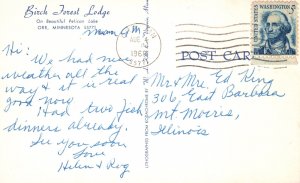 Birch Forest Lodge
On Beautiful Pelican Lake
ORR, MINNESOTA 55771
Mon. A.M.
Hi:
We had nice
weather all the
way & it is real
good now.
Had two fish
dinners already.
See you soon
Love
Helen & Rog
AUG
1968
WASHINGTON
POST CAR
Mr & Mrs. Ed King
306 East Barbara
Mt. Morris,
Illinois